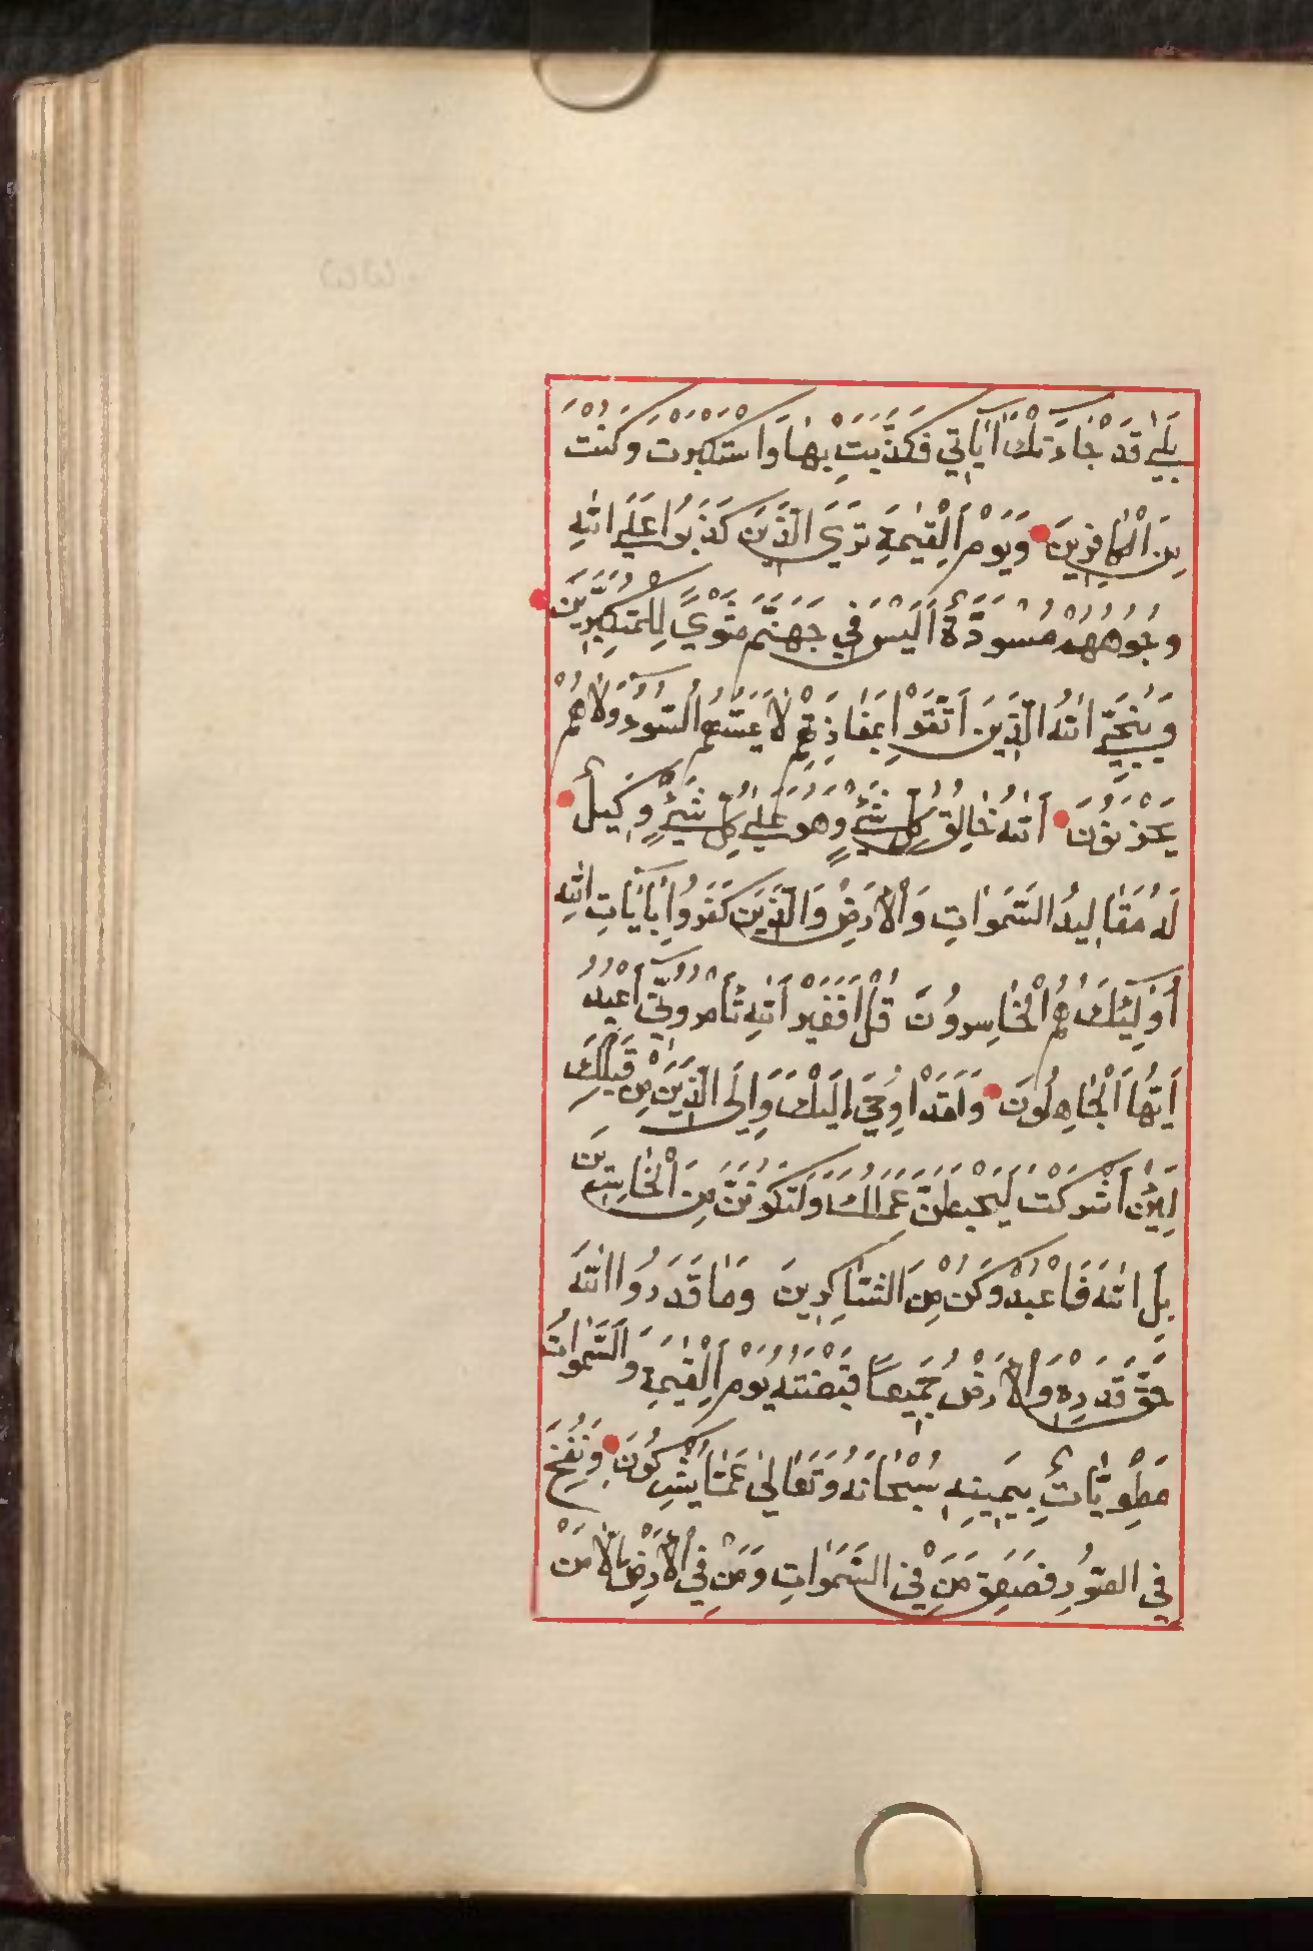 بَلٰى قَدْ جَاءَتْكَ اٰيَاتِي فَكَذَّبْتَ بِهَا وَاسْتَكْبَرْتَ وَكُنْتَ
مِنَ الْكَافِرِينَ وَيَوْمَ الْقِيٰمَةِ تَرَى الَّذِينَ كَذَبُوا عَلَى اللّٰهِ
وُجُوهُهُمْ مُسْوَدَّةٌ اَلَيْسَ فِي جَهَنَّمَ مَثْوًى لِلْمُتَكَبِّرِينَ
وَيُنَجِّي اللّٰهُ الَّذِينَ اتَّقَوْا بِمَفَازَتِهِمْ لَا يَمَسُّهُمُ السُّوءُ وَلَا هُمْ
يَحْزَنُونَ اَللّٰهُ خَالِقُ كُلِّ شَيْءٍ وَهُوَ عَلٰى كُلِّ شَيْءٍ وَكِيلٌ
لَهُ مَقَالِيدُ السَّمٰوَاتِ وَالْاَرْضِ وَالَّذِينَ كَفَرُوا بِاٰيَاتِ اللّٰهِ
اُولٰئِكَ هُمُ الْخَاسِرُونَ قُلْ اَفَغَيْرَ اللّٰهِ تَأْمُرُونِّي اَعْبُدُ
اَيُّهَا الْجَاهِلُونَ وَلَقَدْ اُوحِيَ اِلَيْكَ وَاِلَى الَّذِينَ مِنْ قَبْلِكَ
لَئِنْ اَشْرَكْتَ لَيَحْبَطَنَّ عَمَلُكَ وَلَتَكُونَنَّ مِنَ الْخَاسِرِينَ
بَلِ اللّٰهَ فَاعْبُدْ وَكُنْ مِنَ الشَّاكِرِينَ وَمَا قَدَرُوا اللّٰهَ
حَقَّ قَدْرِهِ وَالْاَرْضُ جَمِيعًا قَبْضَتُهُ يَوْمَ الْقِيٰمَةِ وَالسَّمٰوَاتُ
مَطْوِيَّاتٌ بِيَمِينِهِ سُبْحَانَهُ وَتَعَالٰى عَمَّا يُشْرِكُونَ وَنُفِخَ
فِي الصُّورِ فَصَعِقَ مَنْ فِي السَّمٰوَاتِ وَمَنْ فِي الْاَرْضِ اِلَّا مَنْ